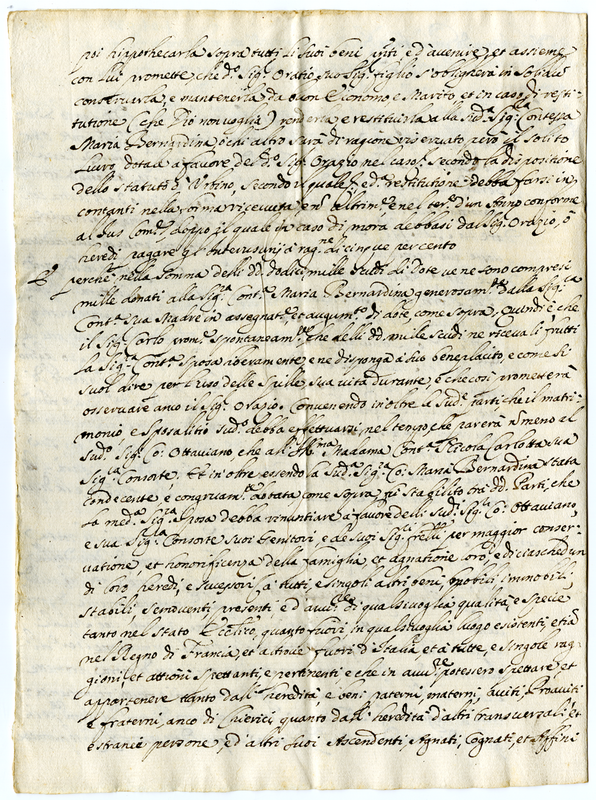 poi hippothecarla sopra tutti li suoi beni pñti, ed avenire, et assieme
con lui promette che d.º Sig.r Oratio suo Sig.r figlio s'obligherà in
conservarla, e mantenerla da buon Economo e Marito, et in caso di resti-
tutione (che Dio non voglia) renderla, e restituirla alla sud.a Sig.ra Contessa
Maria Bernardina, ò chi altro sarà di ragione riservato però il solito
Lucro dotale à favore del d.º Sig.r Orazio nel caso secondo la disposizione
dello statuto d'Urbino, secondo il quale ed.ª restitutione debba farsi in
contanti nella e nel ter.e d'un Anno conforme
al Jus Com.e, doppo il quale in caso di mora debbasi dal Sig.r Orazio, ò
heredi pagare gl'Interusurij à rag.ne di cinque per cento
E perche nella somma delli dd. dodici mille scudi di Dote ve ne sono compresi
mille donati alla Sig.ra Cont.a Maria Bernardina generosam.te dalla Sig.ra
Cont.a sua Madre in assegnat.e et augum.to di dote come sopra, quindi è che
il Sig.r Carlo prom.e spontaneam.te che delli dd. mille scudi ne riceva li frutti
la Sig.ra Cont.a Sposa liberamente, e ne disponga à suo beneplacito, e come si
suol dire per l'uso delle Spille sua vita durante, e che così prometterà
osservare anco il Sig.r Orazio. Convenendo in oltre le sud.e parti che il matri-
monio, e sposalitio sud.º debba effettuarsi nel tempo che parerà nõ meno al
sud.º Sig.r Co: Ottaviano che all' Ill.ma Madama Cont.a Piccola Carlotta sua
Sig.ra Consorte. Et in oltre essendo la sud.a Sig.ra Co: Maria Bernardina stata
condecente, e congruam.te dotata come sopra, fu stabilito trà dd. Parti, che
la med.a Sig.ra Sposa debba renuntiare à favore delli sud.i Sig.ri Co: Ottaviano,
e sua Sig.ra Consorte suoi Genitori, e de suoi Sig.ri frelli, per maggior conser-
vatione, et honorificenza della famiglia, et agnatione loro, e di ciascheduno
di loro heredi, e successori, à tutti, e singoli altri beni, mobili, immobili,
stabili, semoventi, presenti, e d'avvenire di qualsivoglia qualità, e specie
tanto nel stato Eccl.ico, quanto fuori, in qualsivoglia luogo esistenti, etiã
nel Regno di Francia, et altrove fuori d'Italia, et à tutte, e singole rag-
gioni, et attioni spettanti, e pertinenti e che in avve.re potessero spettare, et
appartenere tanto dall' heredità e beni paterni, materni, aviti, Proaviti
e fraterni, anco di Chierici, quanto dall' heredità d'altri transversali, et
estranee persone, ed altri suoi Ascendenti, Agnati, Cognati, et Affini